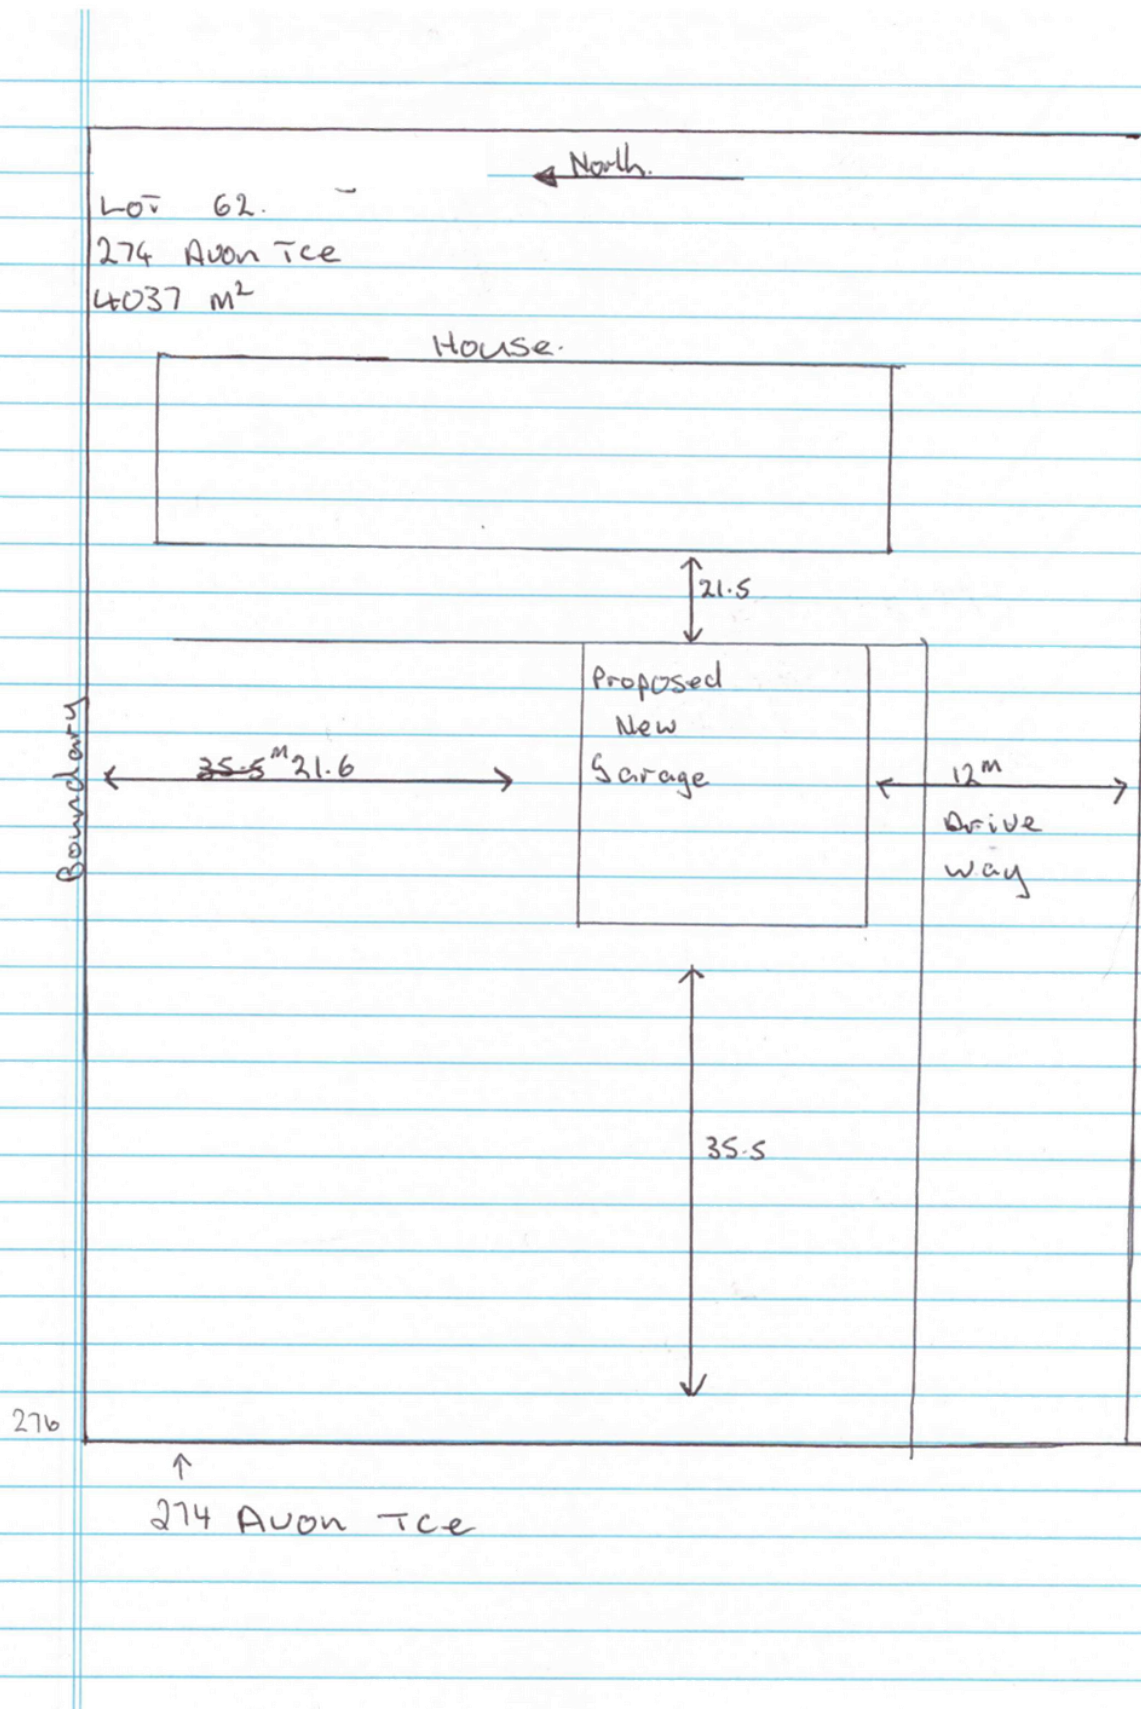 North.
LOT 62.
274 Avon Tce
4037 m²
House.
21.5
Proposed
New
Garage
Boundary
35.5 m 21.6
12 m
Drive
way
35.5
276
274 Avon Tce